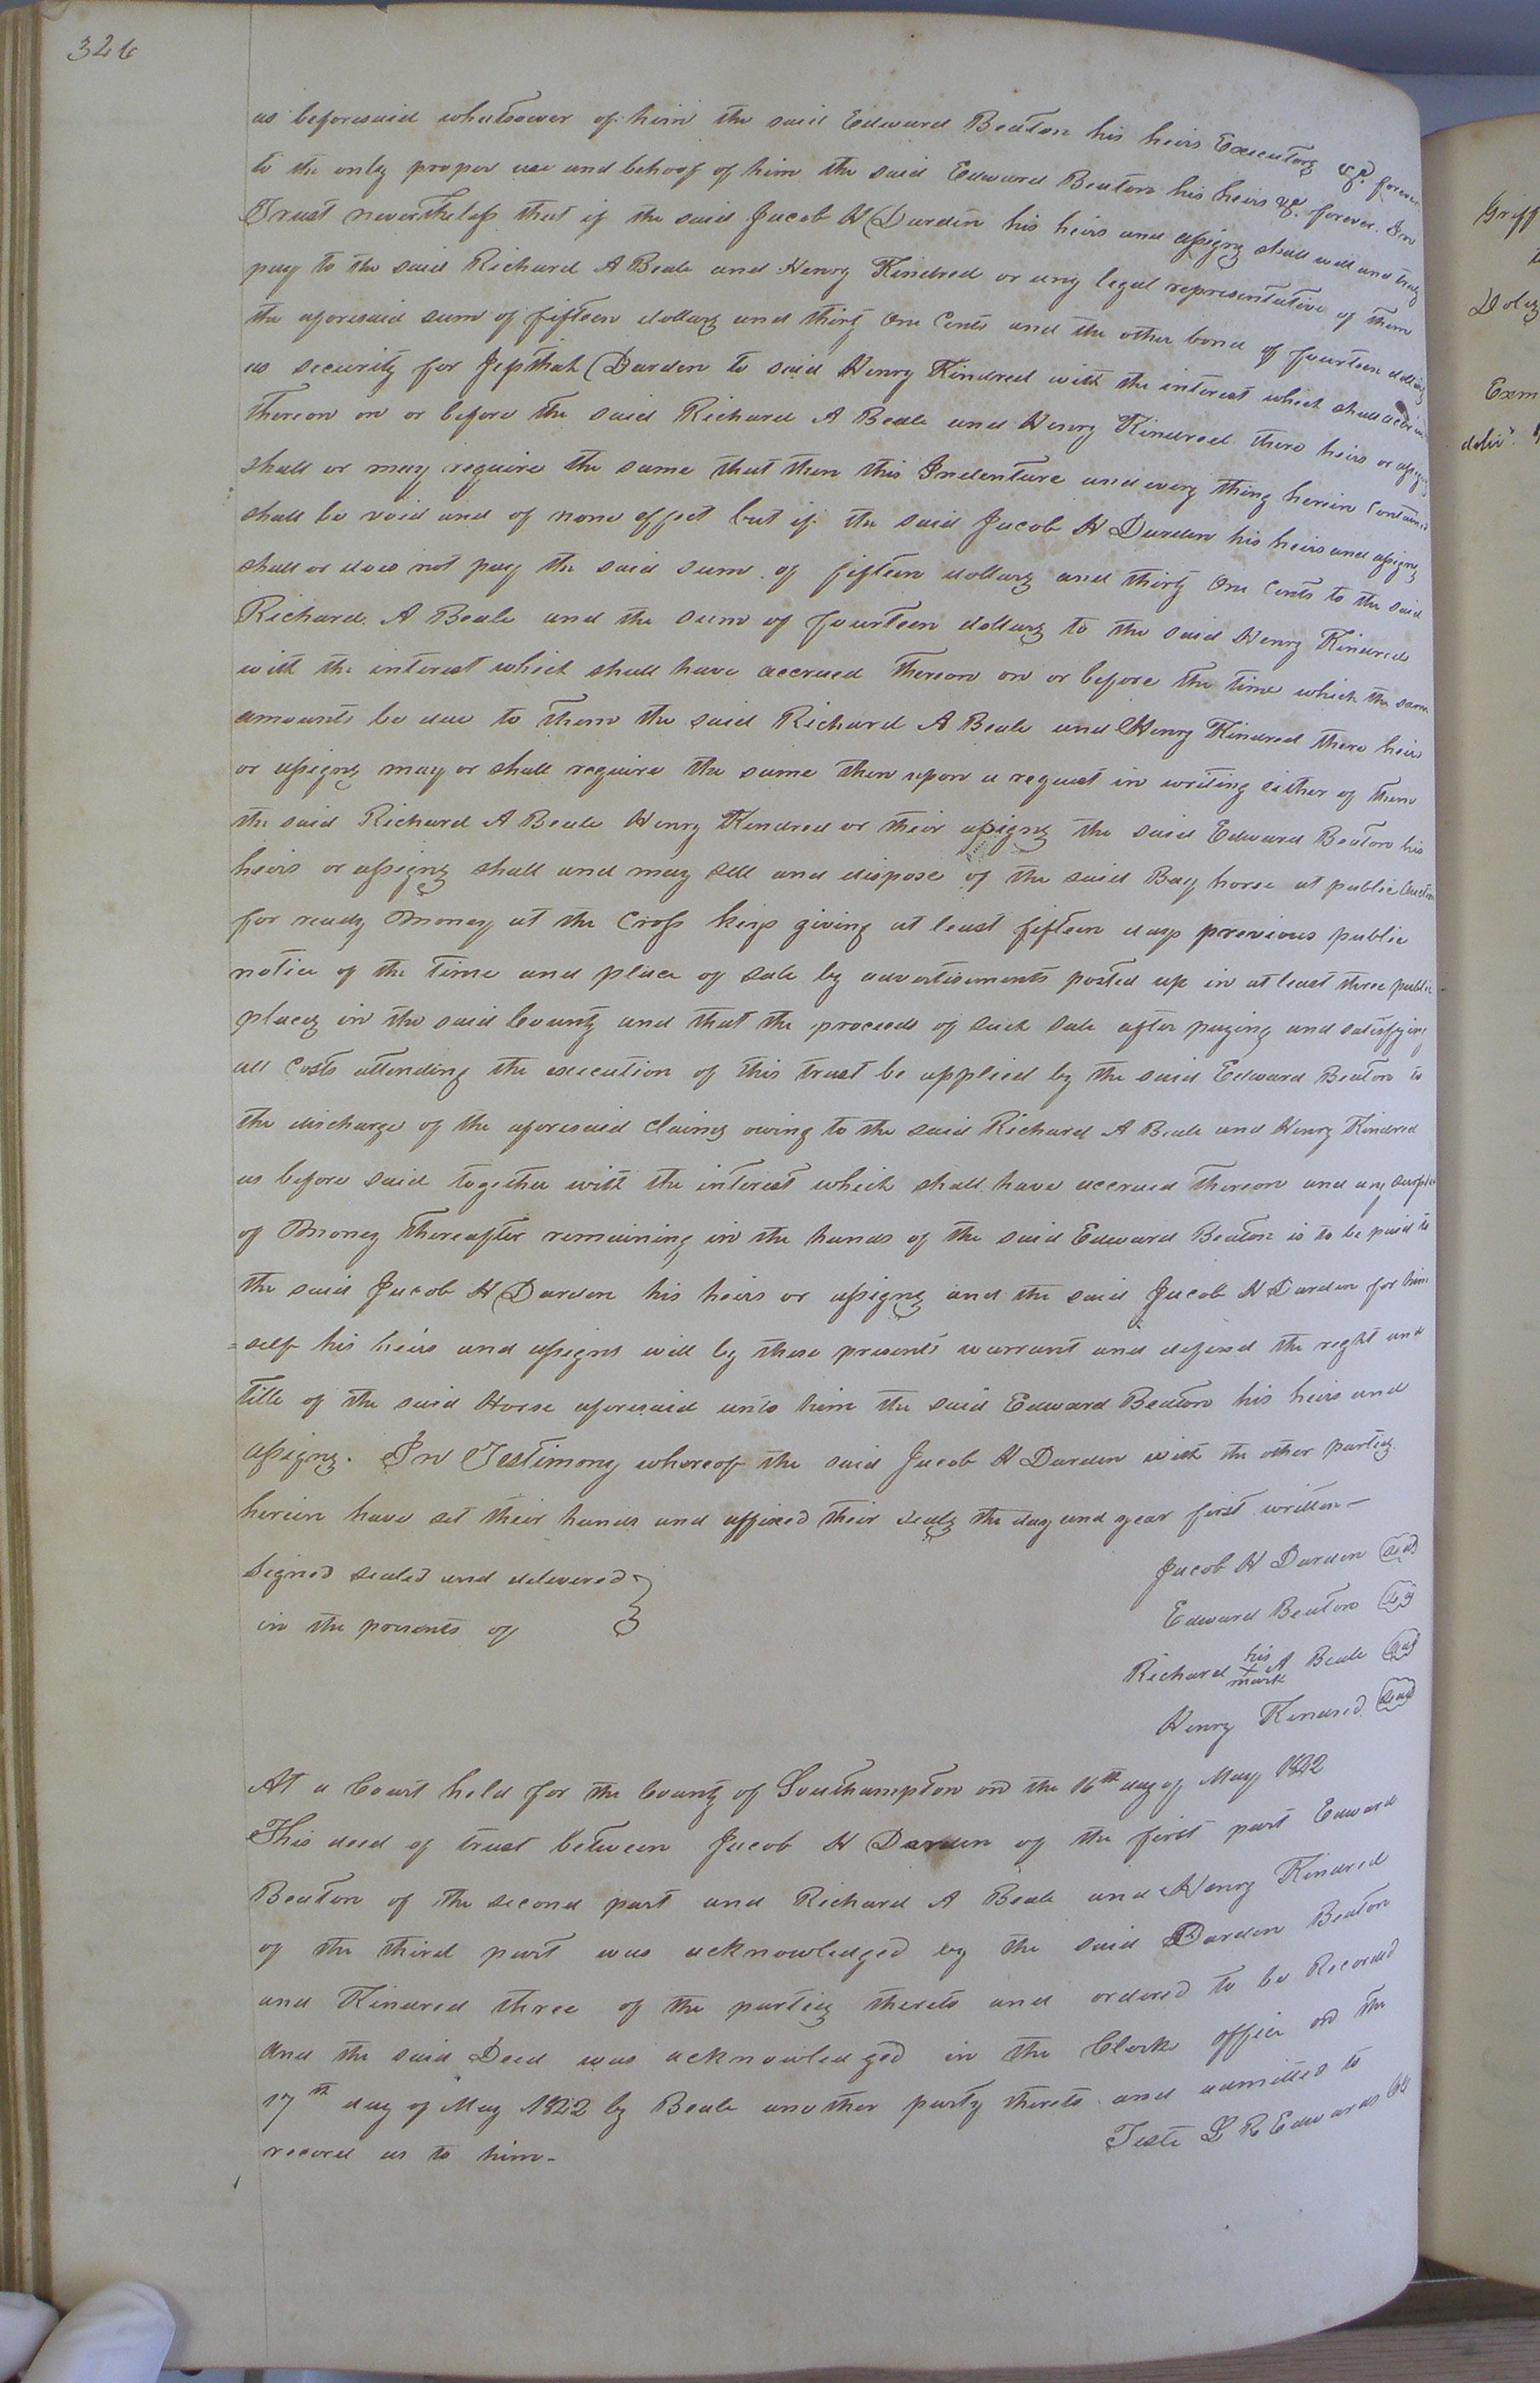 326
as beforesaid whatsoever of him the said Edward Beaton his heirs Executors &c. forever
to the only proper use and behoof of him the said Edward Beaton his heirs &c. forever. In
Trust nevertheless that if the said Jacob H Darden his heirs and assigns shall well and truly
pay to the said Richard A Beale and Henry Kindred or any legal representative of them
the aforesaid sum of fifteen dollars and thirty One Cents and the other bond of fourteen dollars
as security for Jepthah Darden to said Henry Kindred with the interest which shall accrue
thereon on or before the said Richard A Beale and Henry Kindred there heirs or assigns
shall or may require the same that then this Indenture and every thing herein Contained
shall be void and of none effect but if the said Jacob H Darden his heirs and assigns
shall or does not pay the said sum of fifteen dollars and thirty One Cents to the said
Richard A Beale and the sum of fourteen dollars to the said Henry Kindred
with the interest which shall have accrued thereon on or before the time which the same
amounts be due to them the said Richard A Beale and Henry Kindred there heirs
or assigns may or shall require the same then upon a request in writing either of them
the said Richard A Beale Henry Kindred or their assigns the said Edward Beaton his
heirs or assigns shall and may sell and dispose of the said Bay horse at public Auction
for ready Money at the Cross keys giving at least fifteen days previous public
notice of the time and place of sale by advertisements posted up in at least three public
places in the said County and that the proceeds of such sale after paying and satisfying
all Costs attending the execution of this trust be applied by the said Edward Beaton to
the discharge of the aforesaid claims owing to the said Richard A Beale and Henry Kindred
as before said together with the interest which shall have accrued thereon and any surplus
of Money thereafter remaining in the hands of the said Edward Beaton is to be paid to
the said Jacob H Darden his heirs or assigns and the said Jacob H Darden for him
=self his heirs and assigns will by these presents warrant and defend the right and
title of the said Horse aforesaid unto him the said Edward Beaton his heirs and
assigns. In Testimony whereof the said Jacob H Darden with the other parties
herein have set their hands and affixed their seals the day and year first written—
Signed sealed and delevered }
in the presents of
Jacob H Darden (seal)
Edward Beaton (seal)
Richard his x mark A Beale (seal)
Henry Kindred (seal)
At a Court held for the County of Southampton on the 16th day of May 1822
This deed of trust between Jacob H Darden of the first part Edward
Beaton of the second part and Richard A Beale and Henry Kindred
of the third part was acknowledged by the said Darden Beaton
and Kindred three of the parties thereto and ordered to be Recorded
And the said Deed was acknowledged in the Clerks office on the
17th day of May 1822 by Beale another party thereto and admitted to
record as to him-
Teste L R Edwards Clk
Griff
Doly
Exm
deliv'd